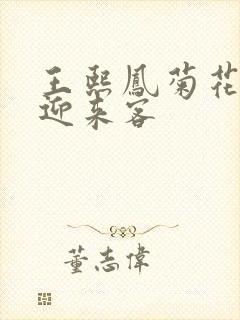 王熙鳳菊花
迎来客
董志偉